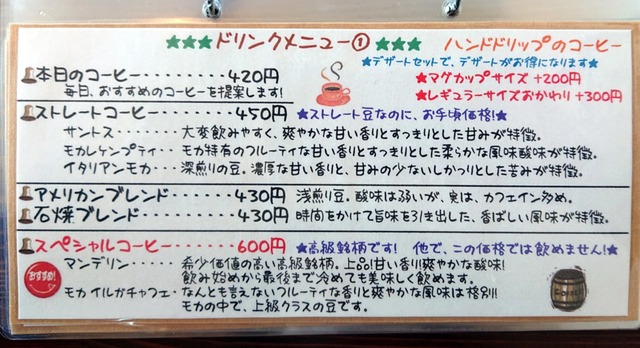 ★★★ドリンクメニュー① ★★★ ハンドドリップのコーヒー
★デザートセットで、デザートがお得になります★
本日のコーヒー・・・・・・・・420円 ★マグカップサイズ +200円
毎日、おすすめのコーヒーを提案します! ★レギュラーサイズおかわり +300円
ストレートコーヒー・・・・・・・・450円 ★ストレート豆なのに、お手頃価格!★
サントス・・・・・・・・大変飲みやすく、爽やかな甘い香りとすっきりとした甘みが特徴。
モカレケンプティ・・モカ特有のフルーティな甘い香りとすっきりとした柔らかな風味酸味が特徴。
イタリアンモカ・・・深煎りの豆。濃厚な甘い香りと、甘みの少ないしかつりとした苦みが特徴。
アメリカンブレンド・・・・・・430円 浅煎り豆。酸味は弱いが、実は、カフェイン多め。
石焼ブレンド・・・・・・・・430円 時間をかけて旨味を引き出した、香ばしい風味が特徴。
スペシャルコーヒー・・・・・・600円 ★高級銘柄です! 他で、この価格では飲めません!★
おすすめ! マンデリン・・・・・希少価値の高い高級銘柄。上品!甘い香り!爽やかな酸味!
飲み始めから最後まで冷めても美味しく飲めます。
モカ イルガチャフェ・なんとも言えないフルーティな香りと爽やかな風味は格別!
モカの中で、上級クラスの豆です。